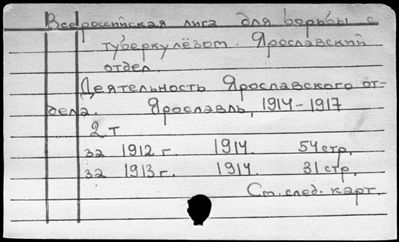 Всероссийская лига для борьбы с
туберкулёзом. Ярославский
отдел.
Деятельность Ярославского от-
дела. Ярославль, 1914-1917
2 т
за 1912 г. 1914. 54 стр.
за 1913 г. 1914. 31 стр.
См. след. карт.